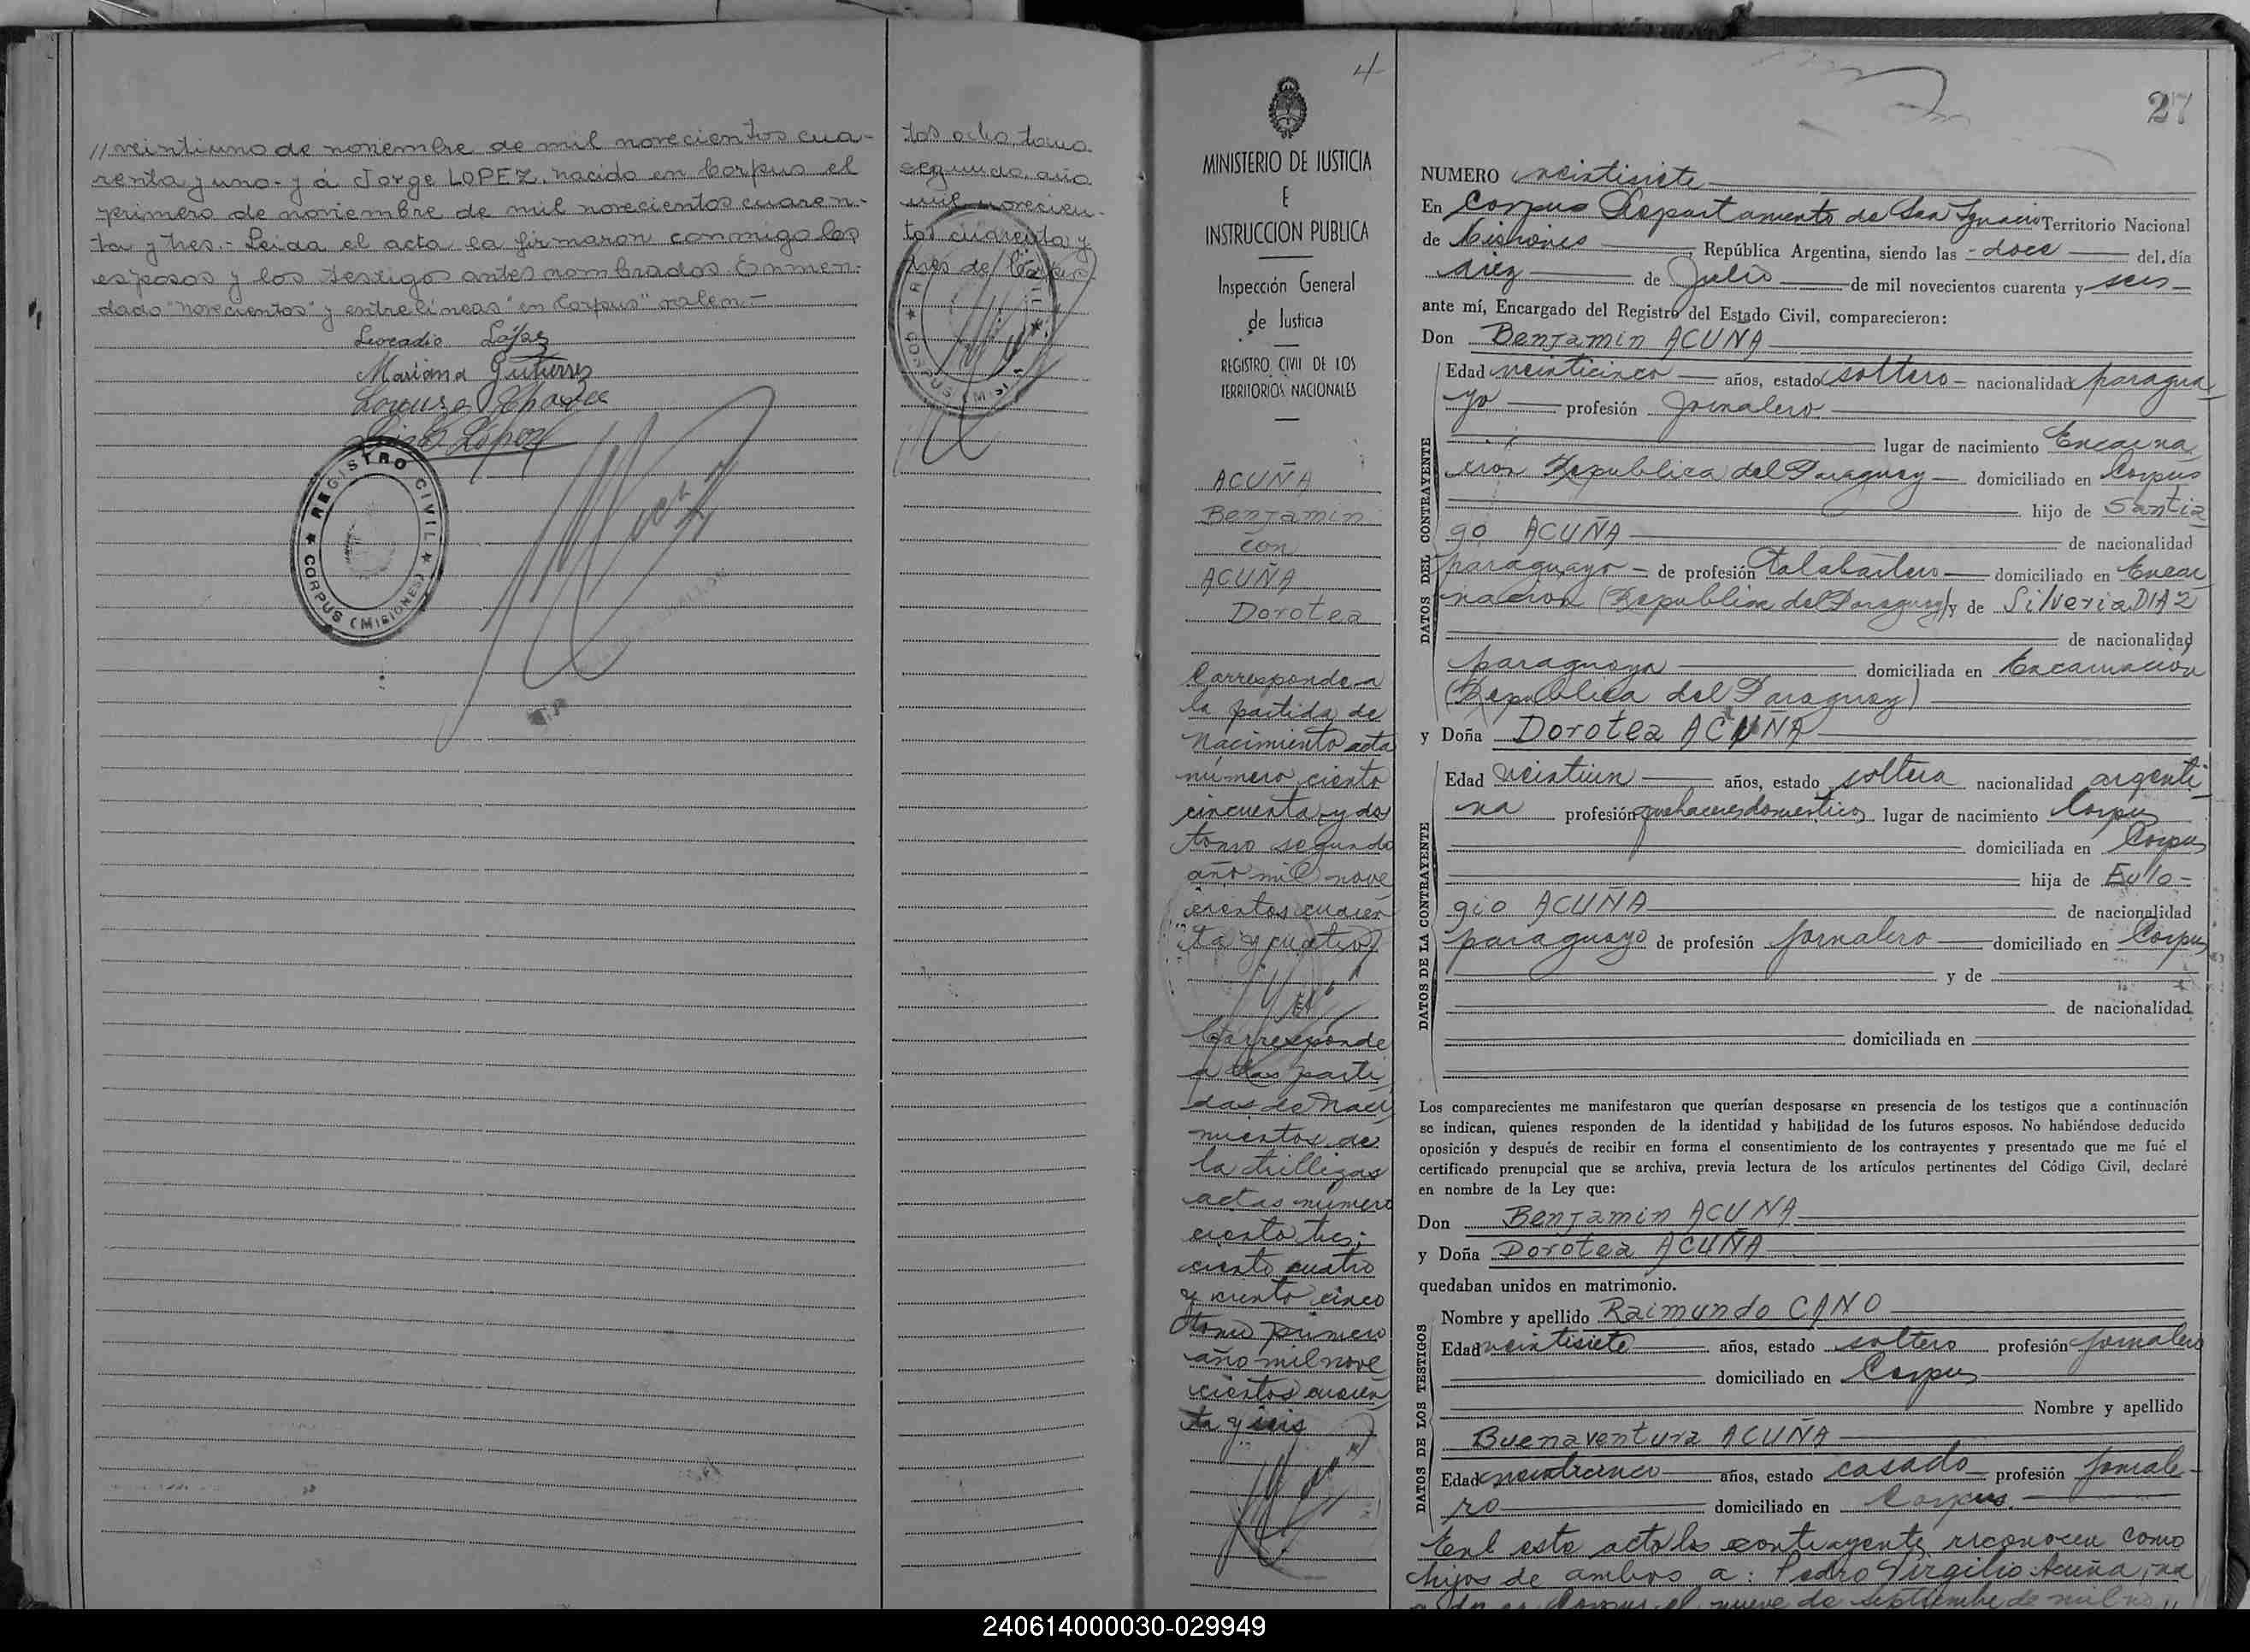 // veintiuno de noviembre de mil novecientos cua-
renta y uno.- y á Jorge LOPEZ, nacido en Corpus el
primero de noviembre de mil novecientos cuaren-
ta y tres.- Leida el acta la firmaron conmigo los
esposos y los testigos antes nombrados. Enmen-
dado "novecientos" y entrelíneas "en Corpus" valen.-
Leocadio López
Mariana Gutierrez
Lopez
REGISTRO CIVIL
CORPUS (MISIONES)
tos ocho tomo
segundo, año
mil novecien-
tos cuarenta y
tres de Corpus
4
MINISTERIO DE JUSTICIA
E
INSTRUCCION PUBLICA
Inspección General
de Justicia
REGISTRO CIVIL DE LOS
TERRITORIOS NACIONALES
ACUÑA
Benjamin
con
ACUÑA
Dorotea
Corresponde a
la partida de
Nacimiento acta
número ciento
cincuenta y dos
tomo segundo
año mil nove
cientos cuaren
ta y cuatro
Corresponde
a las parti
das de Naci
mientos de
la trillizas
actas número
ciento tres;
ciento cuatro
y ciento cinco
tomo primero
año mil nove
cientos cuaren
ta y seis
27
NUMERO veintisiete
En Corpus Departamento de San Ignacio Territorio Nacional
de Misiones, República Argentina, siendo las - doce del día
diez de Julio de mil novecientos cuarenta y seis
ante mí, Encargado del Registro del Estado Civil, comparecieron:
Don Benjamin ACUÑA
DATOS DEL CONTRAYENTE
Edad veinticinco años, estado soltero nacionalidad paragua
yo profesión Jornalero
lugar de nacimiento Encarna
cion Republica del Paraguay domiciliado en Corpus
hijo de Santia
go ACUÑA de nacionalidad
paraguayo de profesión talabartero domiciliado en Encar
nacion (Republica del Paraguay) y de Silveria DIAZ
de nacionalidad
paraguaya domiciliada en Encarnacion
(Republica del Paraguay)
y Doña Dorotea ACUÑA
DATOS DE LA CONTRAYENTE
Edad veintiun años, estado soltera nacionalidad argenti
na profesión quehaceres domesticos lugar de nacimiento Corpus
domiciliada en Corpus
hija de Eulo-
gio ACUÑA de nacionalidad
paraguayo de profesión jornalero domiciliado en Corpus
y de
de nacionalidad
domiciliada en
Los comparecientes me manifestaron que querían desposarse en presencia de los testigos que a continuación
se indican, quienes responden de la identidad y habilidad de los futuros esposos. No habiéndose deducido
oposición y después de recibir en forma el consentimiento de los contrayentes y presentado que me fué el
certificado prenupcial que se archiva, previa lectura de los artículos pertinentes del Código Civil, declaré
en nombre de la Ley que:
Don Benjamin ACUÑA
y Doña Dorotea ACUÑA
quedaban unidos en matrimonio.
DATOS DE LOS TESTIGOS
Nombre y apellido Raimundo CANO
Edad veintisiete años, estado soltero profesión jornalero
domiciliado en Corpus
Nombre y apellido
Buenaventura ACUÑA
Edad años, estado casado profesión jornale-
ro domiciliado en Corpus.
En este acto los contrayentes reconocen como
hijos de ambos a: Pedro Virgilio Acuña, na
cido en Corpus el nueve de septiembre de mil no
240614000030-029949